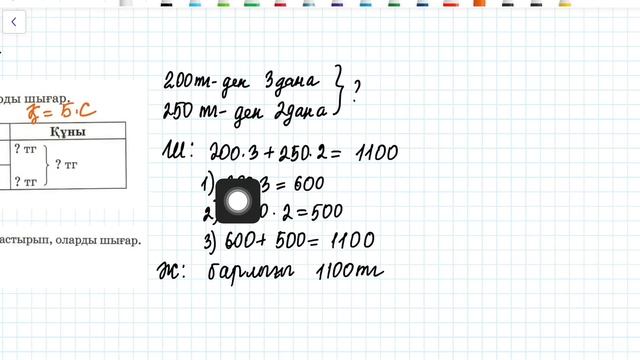 рды шығар.
Қ = Б·С
Құны
? тг
? тг
? тг
астырып, оларды шығар.
200тг-ден 3дана
250тг-ден 2дана
?
Ш: 200·3+250·2= 1100
1) 3 = 600
2) 0·2=500
3) 600+500=1100
Ж: барлығы 1100тг